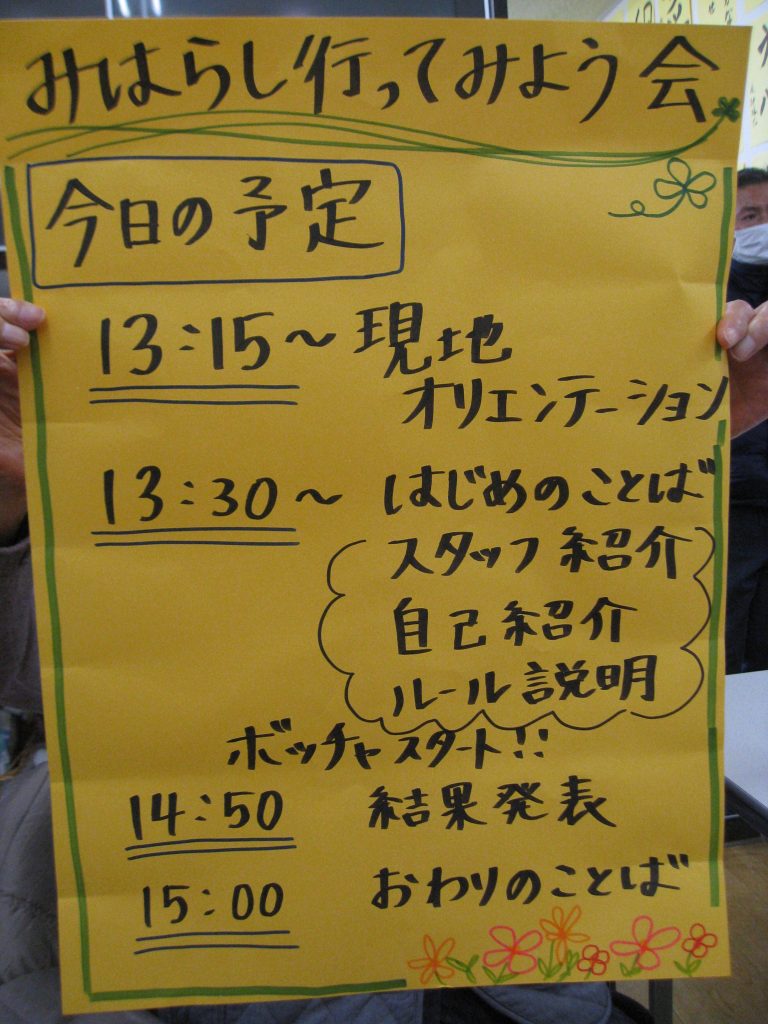 みはらし行ってみよう会
今日の予定
13:15～現地
オリエンテーション
13:30～ はじめのことば
スタッフ紹介
自己紹介
ルール説明
ボッチャスタート!!
14:50 結果発表
15:00 おわりのことば